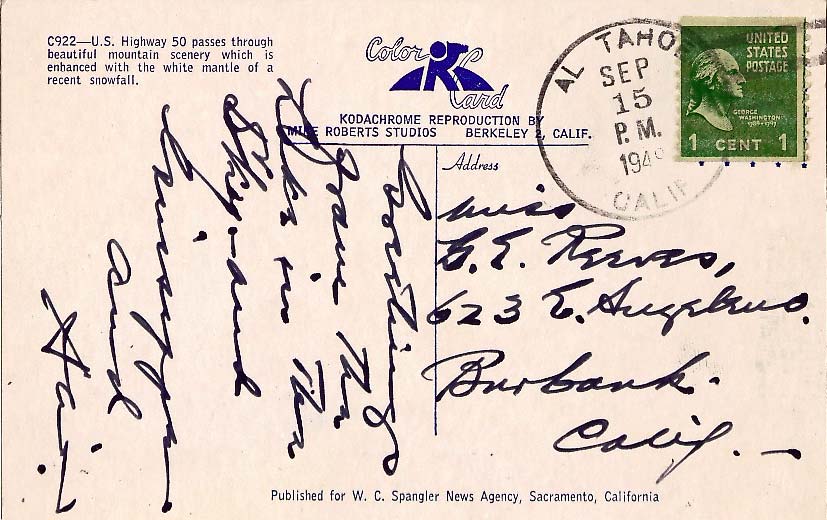 C922—U.S. Highway 50 passes through
beautiful mountain scenery which is
enhanced with the white mantle of a
recent snowfall.
Color
Card
KODACHROME REPRODUCTION BY
MIKE ROBERTS STUDIOS BERKELEY 2, CALIF.
AL TAHOE
SEP
15
P. M.
CALIF
UNITED
STATES
POSTAGE
GEORGE
WASHINGTON
1789-1797
1 CENT 1
Address
Miss
G. E. Reeves,
623 E. Angeleno.
Burbank.
Calif. —
Greetings
from the
in the
Sky—and
and
Published for W. C. Spangler News Agency, Sacramento, California